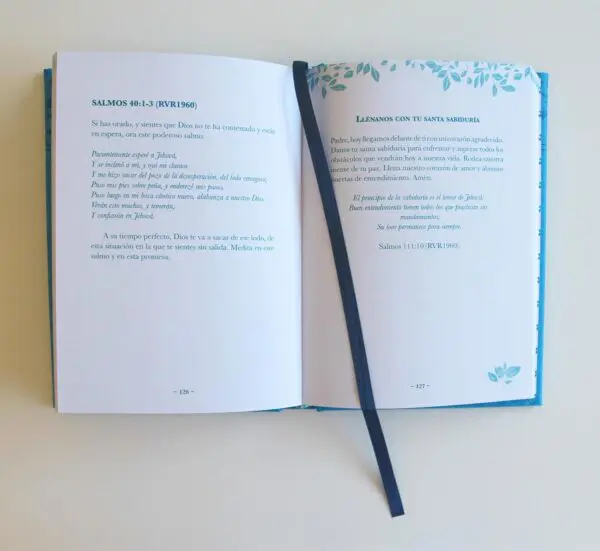 SALMOS 40:1-3 (RVR1960)
Si has orado, y sientes que Dios no te ha contestado y estás
en espera, ora este poderoso salmo.
Pacientemente esperé a Jehová,
Y se inclinó a mí, y oyó mi clamor.
Y me hizo sacar del pozo de la desesperación, del lodo cenagoso;
Puso mis pies sobre peña, y enderezó mis pasos.
Puso luego en mi boca cántico nuevo, alabanza a nuestro Dios.
Verán esto muchos, y temerán,
Y confiarán en Jehová.
A su tiempo perfecto, Dios te va a sacar de ese lodo, de
esta situación en la que te sientes sin salida. Medita en este
salmo y en esta promesa.
– 126 –
LLÉNANOS CON TU SANTA SABIDURÍA
Padre, hoy llegamos delante de ti con un corazón agradecido.
Danos tu santa sabiduría para enfrentar y superar todos los
obstáculos que vendrán hoy a nuestra vida. Rodea nuestra
mente de tu paz. Llena nuestro corazón de amor y abre
puertas de entendimiento. Amén.
El principio de la sabiduría es el temor de Jehová;
Buen entendimiento tienen todos los que practican sus
mandamientos;
Su loor permanece para siempre.
Salmos 111:10 (RVR1960)
– 127 –